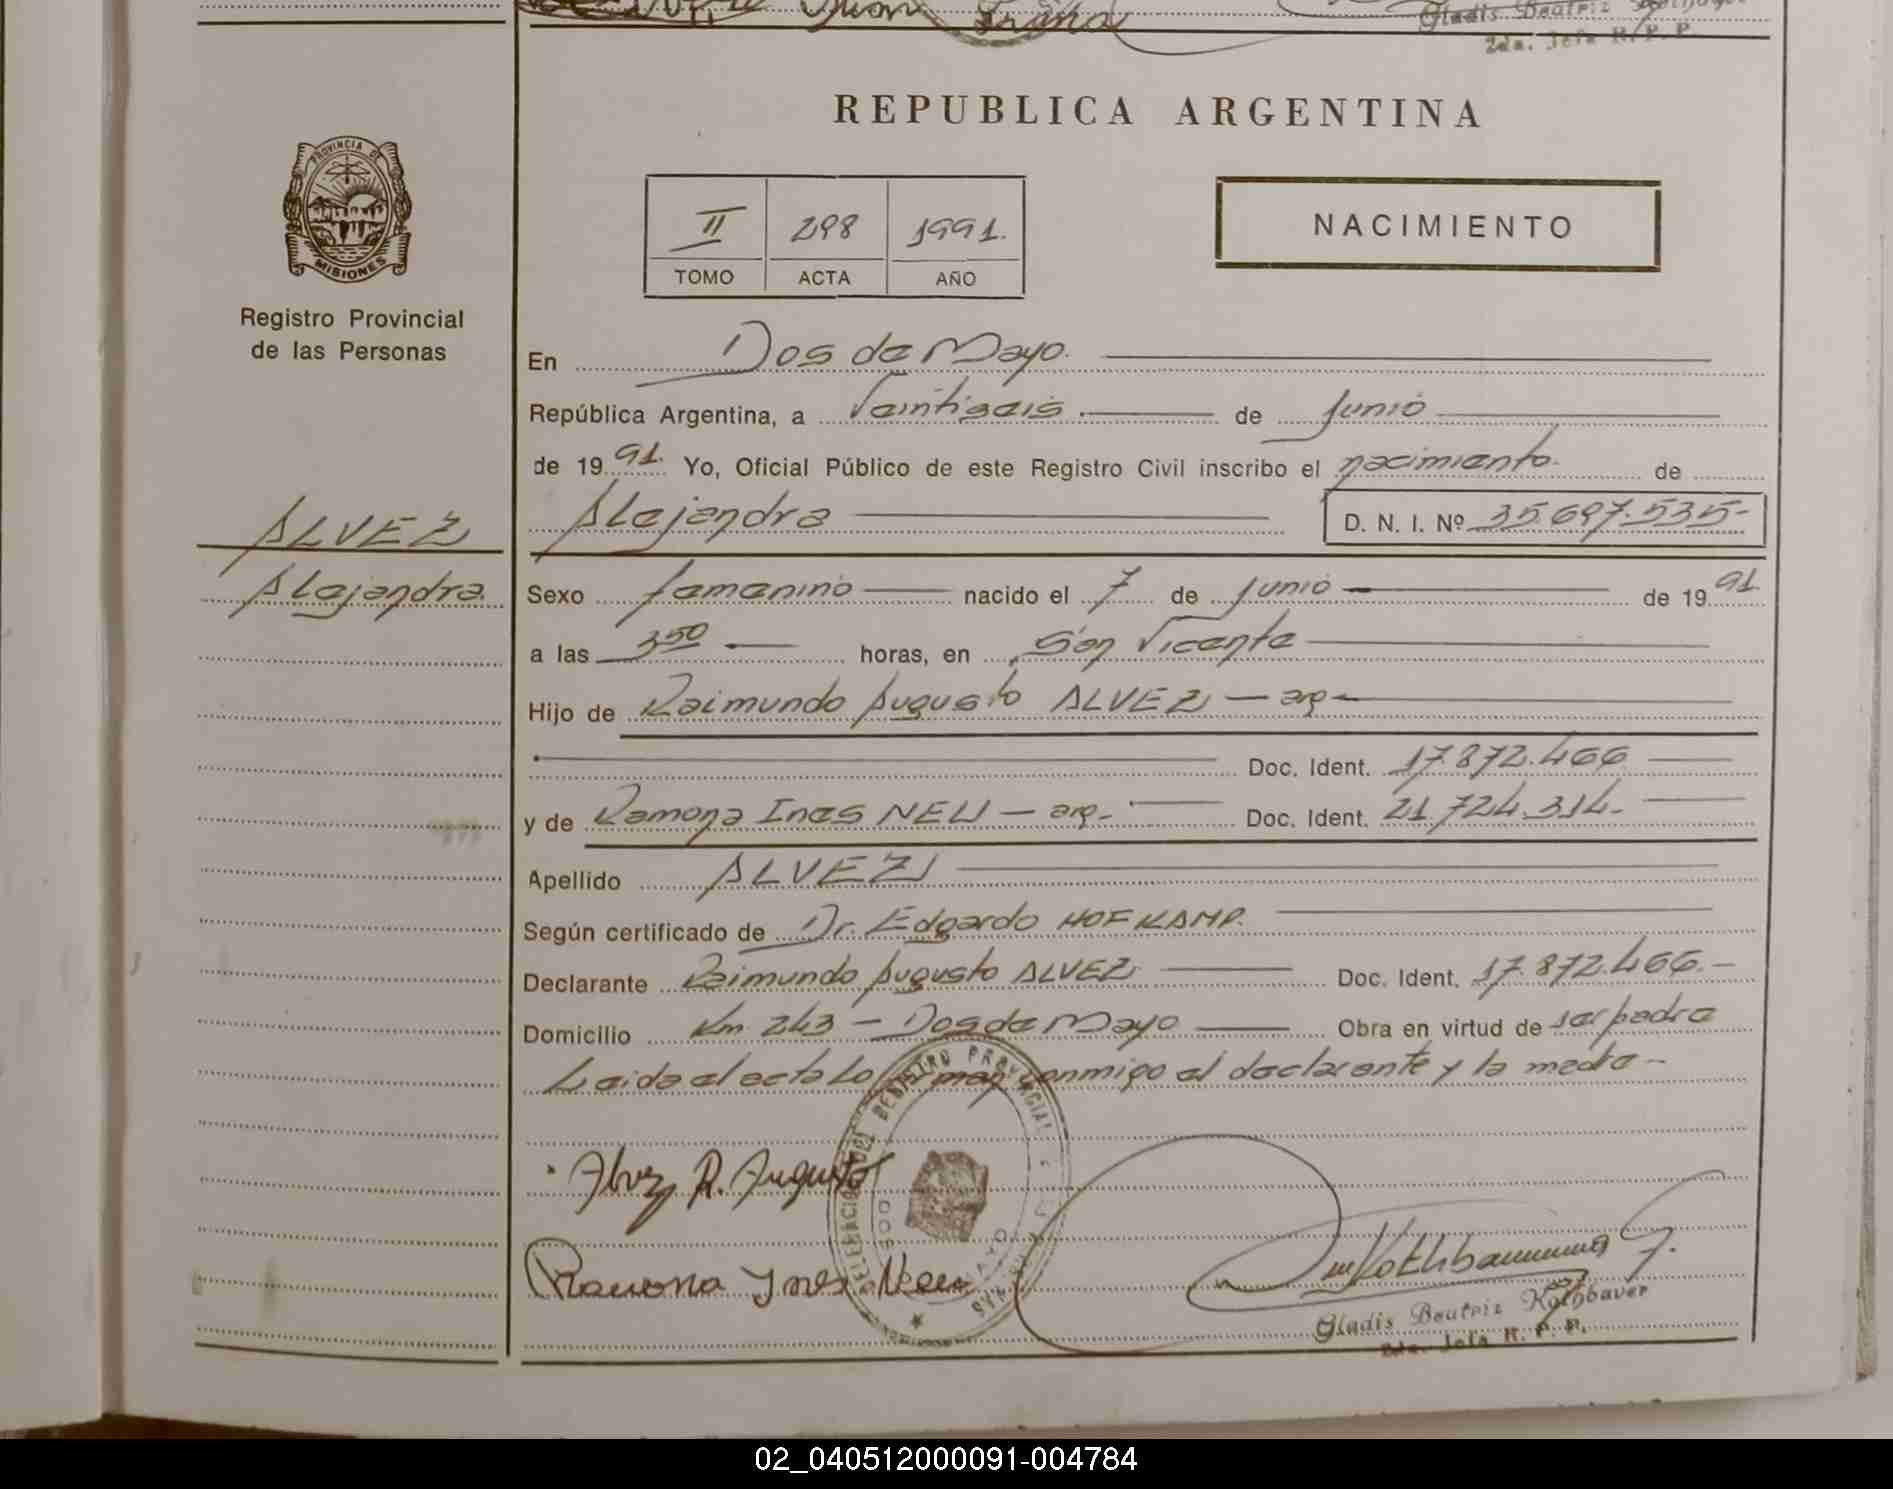 Gladis Beatriz Kothbauer
2da. Jefa R. P. P.
REPUBLICA ARGENTINA
PROVINCIA DE
MISIONES
Registro Provincial
de las Personas
II 298 1991.
TOMO ACTA AÑO
NACIMIENTO
En Dos de Mayo.
República Argentina, a Veintiseis de Junio
de 1991. Yo, Oficial Público de este Registro Civil inscribo el nacimiento. de
Alejandra D. N. I. Nº 35.697.535-
ALVEZ
Alejandra
Sexo femenino nacido el 7 de Junio de 1991
a las 3 50 horas, en San Vicente
Hijo de Raimundo Augusto ALVEZ — arg—
Doc. Ident. 17.872.466
y de Ramona Ines NEU — arg. Doc. Ident. 21.724.314.
Apellido ALVEZ
Según certificado de Dr. Edgardo HOFKAMP.
Declarante Raimundo Augusto ALVEZ Doc. Ident. 17.872.466.
Domicilio Km 243 — Dos de Mayo Obra en virtud de ser padre
Leida el acta conmigo el declarante y la madre
Alvez R. Augusto
Ramona Ines Neu
Gladis Beatriz Kothbauer
2da. Jefa R. P. P.
02_040512000091-004784